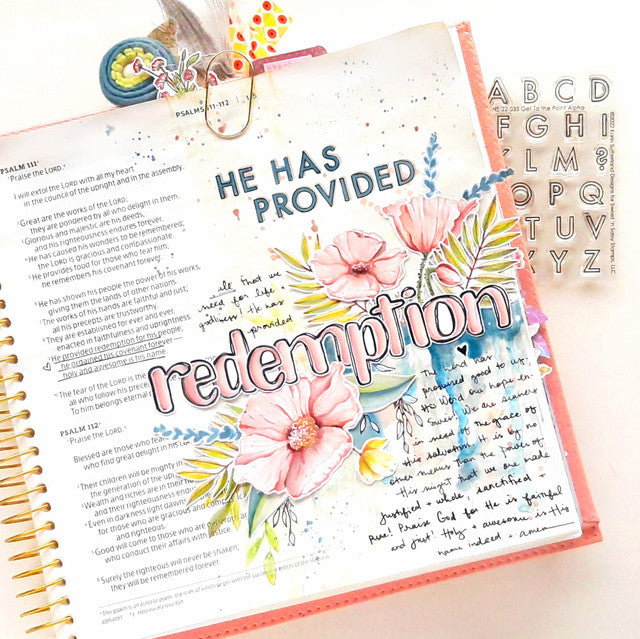 PSALMS 111-112
PSALM 111
Praise the LORD.
I will extol the LORD with all my heart
in the council of the upright and in the assembly.
Great are the works of the LORD;
they are pondered by all who delight in them.
Glorious and majestic are his deeds,
and his righteousness endures forever.
He has caused his wonders to be remembered;
the LORD is gracious and compassionate.
He provides food for those who fear him;
he remembers his covenant forever.
He has shown his people the power of his works,
giving them the lands of other nations.
The works of his hands are faithful and just;
all his precepts are trustworthy.
They are established for ever and ever,
enacted in faithfulness and uprightness.
He provided redemption for his people;
he ordained his covenant forever
holy and awesome is his name.
The fear of the LORD is the
all who follow his precep
To him belongs eternal
PSALM 112
Praise the LORD.
Blessed are those who fear
who find great delight in his co
Their children will be mighty in
the generation of the up
Wealth and riches are in their h
and their righteousness en
Even in darkness light dawn
for those who are gracious and compa
and righteous.
Good will come to those who are generous
who conduct their affairs with justice.
Surely the righteous will never be shaken;
they will be remembered forever.
HE HAS
PROVIDED
all that we
need for life +
godliness! He has
provided
redemption
The Lord has
promised good to us,
His Word our hope
secures. We are sinners
in need of the grace of
this salvation. It is by
other means than the power of
this might that we are made
justified + whole, sanctified +
Praise God for He is faithful
and just! Holy + awesome is His
name indeed + amen
A B C D
F G H I
K L M
O P Q
T U V
Y Z
Get To the Point Alpha